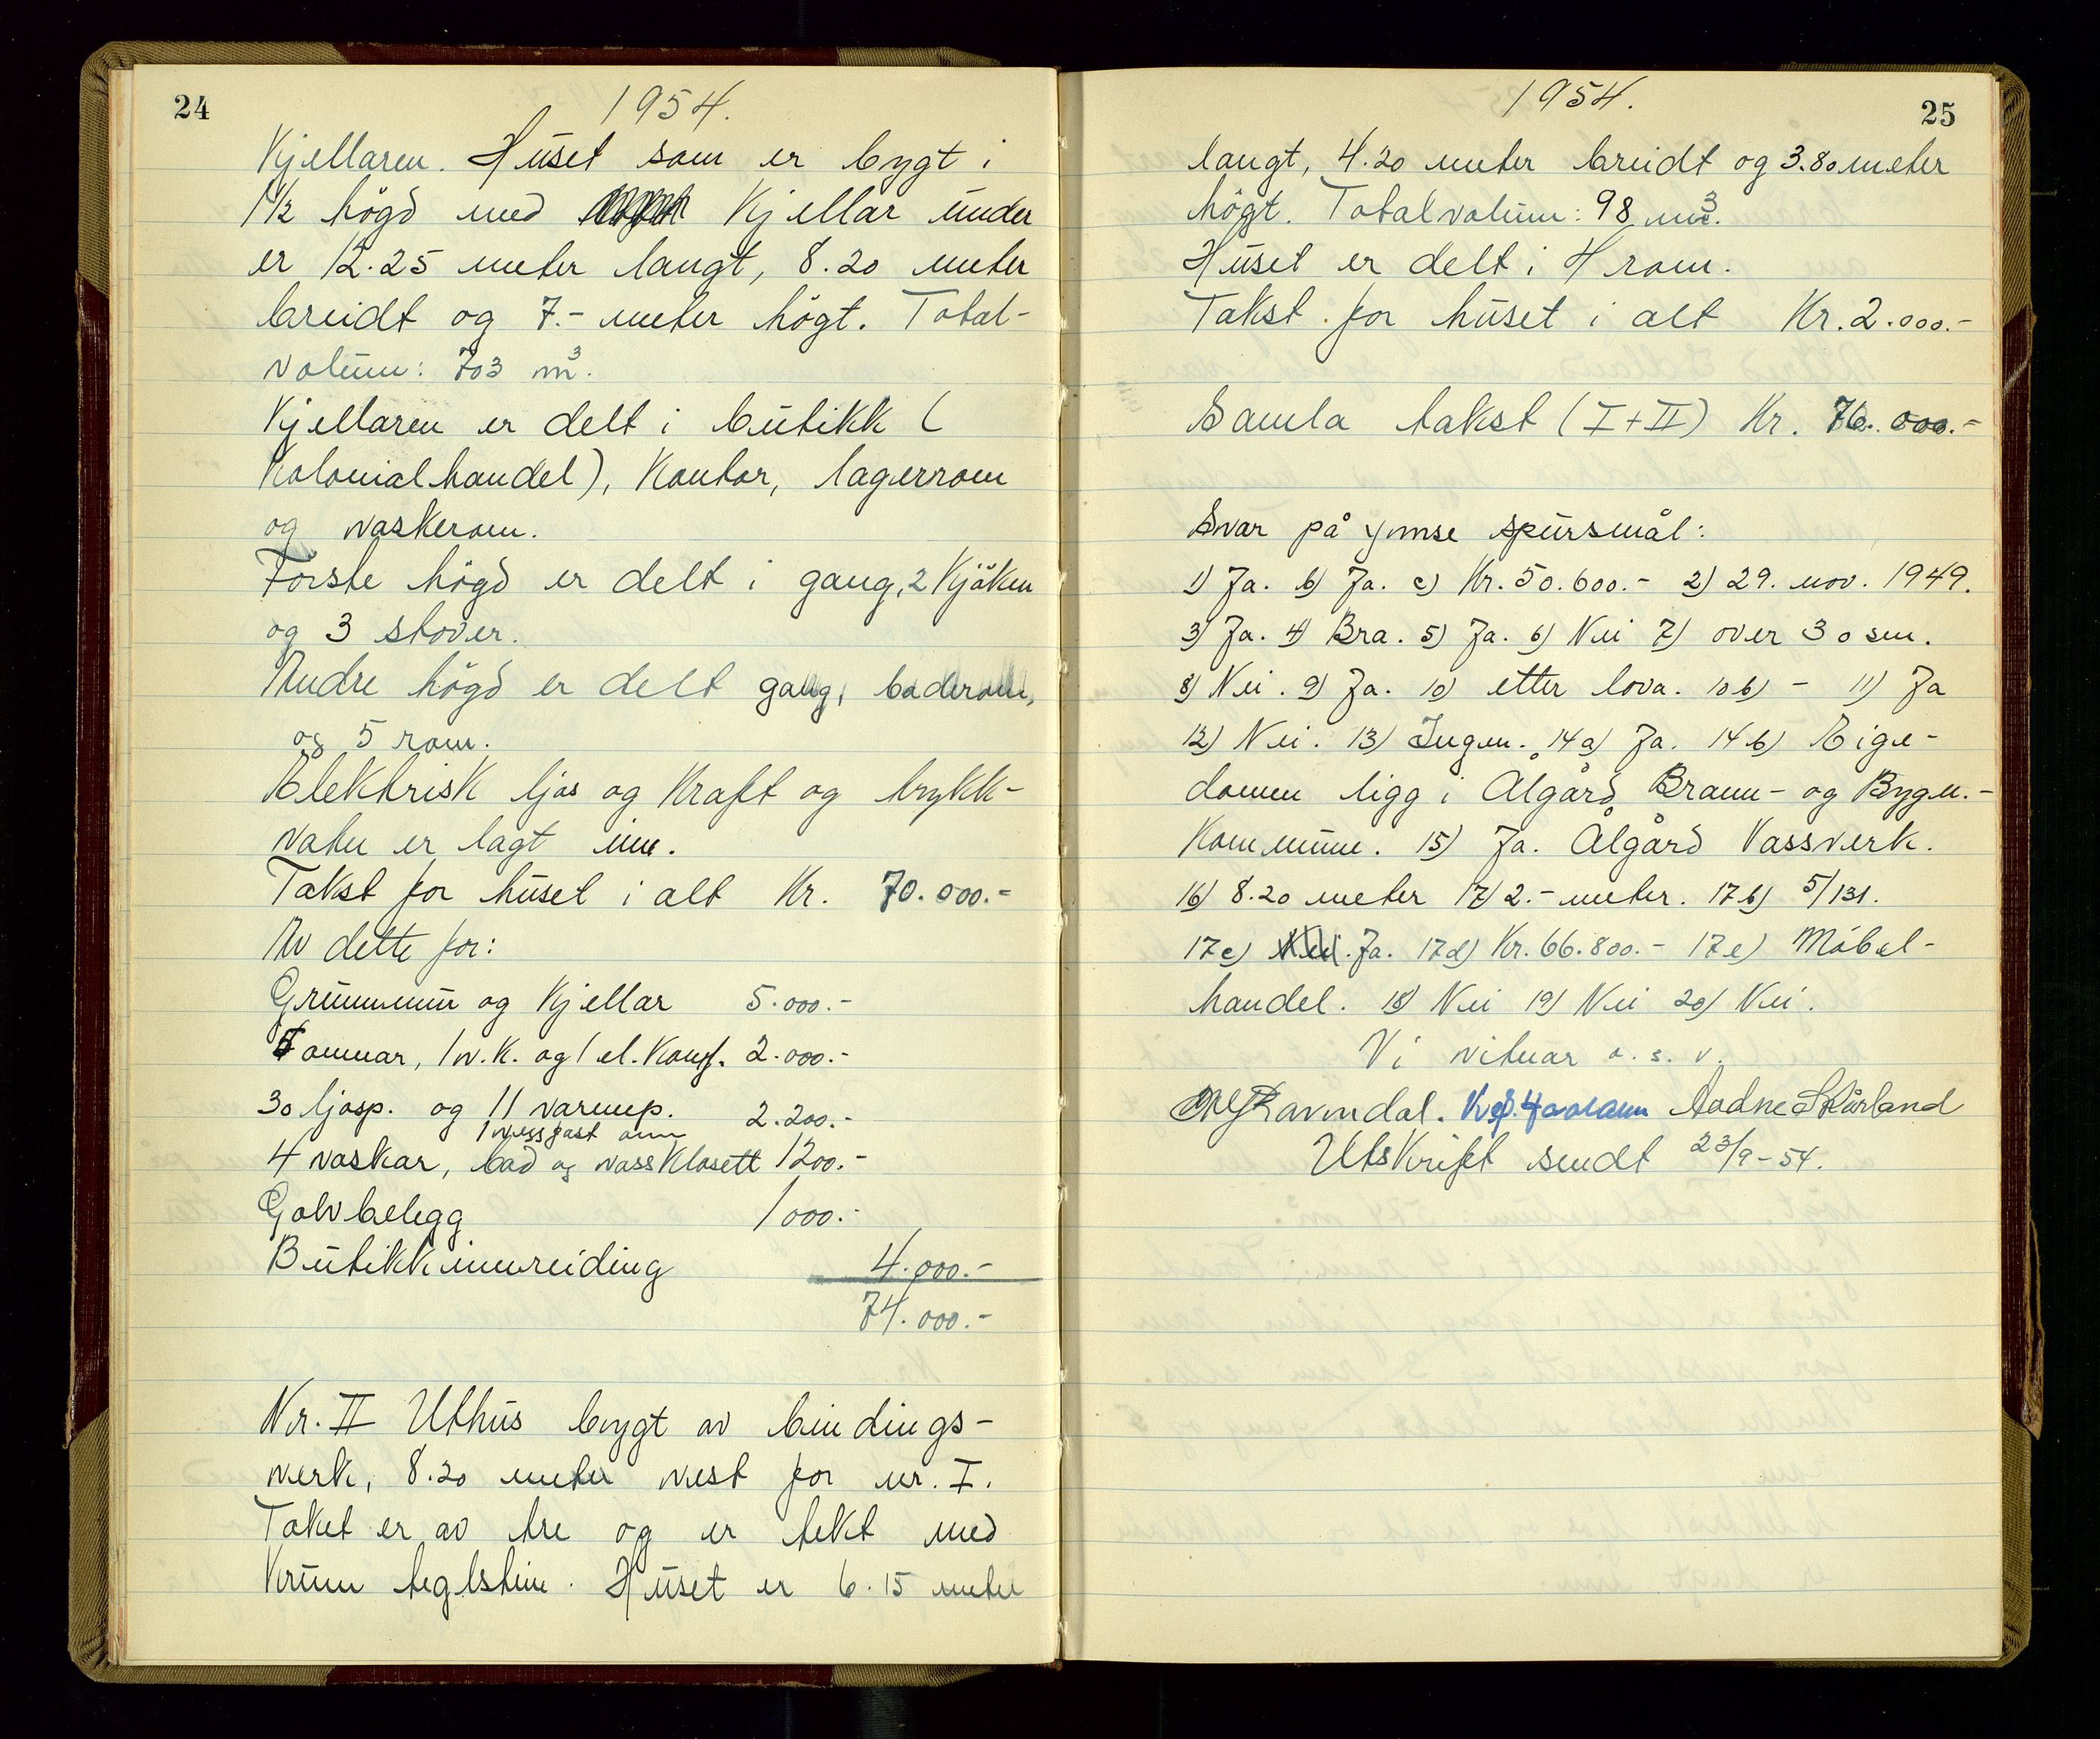 24
1954.
Kjellaren. Huset som er bygt i
1½ högd med Kjellar under
er 12.25 meter langt, 8.20 meter
breidt og 7.- meter högt. Total-
volum: 703 m³.
Kjellaren er delt i butikk (
Kolonialhandel), Kontor, lagerrom
og vaskerom.
Förste högd er delt i gang, 2 Kjöken
og 3 stover.
Andre högd er delt gang, baderom,
og 5 rom.
Elektrisk ljos og Kraft og trykk-
vatn er lagt inn.
Takst for huset i alt Kr. 70.000.-
Av dette for:
Grunnmur og Kjellar 5.000.-
5 omnar, 1 v.K. og 1 el. Komf. 2.000.-
30 ljosp. og 11 varmep. 2.200.-
1 omn
4 vaskar, bad og vassklosett 1200.-
Golvbelegg 1000.-
Butikkinnreiding 4.000.-
74.000.-
Nr. II Uthus bygt av bindings-
verk, 8.20 meter vest for nr. I.
Taket er av tre og er tekt med
Krum teglstein. Huset er 6.15 meter
1954.
25
langt, 4.20 meter breidt og 3.80 meter
högt. Totalvolum: 98 m³.
Huset er delt i 4 rom.
Takst for huset i alt Kr. 2.000.-
Samla takst (I+II) Kr. 76.000.-
Svar på ymse spursmål:
1) Ja. b) Ja. c) Kr. 50.600.- 2) 29. nov. 1949.
3) Ja. 4) Bra. 5) Ja. 6) Nei 7) over 30 sm.
8) Nei. 9) Ja. 10) etter lova. 10b) - 11) Ja
12) Nei. 13) Ingen. 14a) Ja. 14b) Eige-
domen ligg i Ålgård Brann- og Bygn.-
Kommune. 15) Ja. Ålgård Vassverk.
16) 8.20 meter 17) 2.- meter. 17b) 5/131.
17c) Ja. 17d) Kr. 66.800.- 17e) Möbel-
handel. 18) Nei 19) Nei 20) Nei.
Vi vitnar o.s.v.
Ravndal. Aadne Skårland
Utskrift sendt 23/9-54.